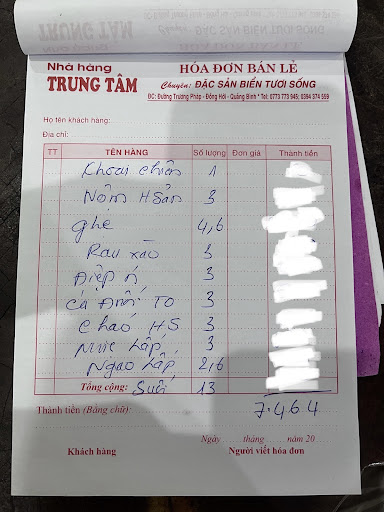 TRUNG TÂM
Nhà hàng
TRUNG TÂM
HÓA ĐƠN BÁN LẺ
Chuyên: ĐẶC SẢN BIỂN TƯƠI SỐNG
ĐC: Đường Trương Pháp - Đồng Hới - Quảng Bình * Tel: 0773 773 945; 0394 374 559
Họ tên khách hàng:
Địa chỉ:
TT TÊN HÀNG Số lượng Đơn giá Thành tiền
Khoai chiên 1
Nộm HSản 3
ghẹ 4,6
Rau xào 3
Điệp 3
cá Đuối TO 3
cháo HS 3
Mực hấp 3
Ngao hấp 2,6
Tổng cộng: Suối 13
Thành tiền (Bằng chữ): 7.464
Ngày tháng năm 20
Khách hàng Người viết hóa đơn